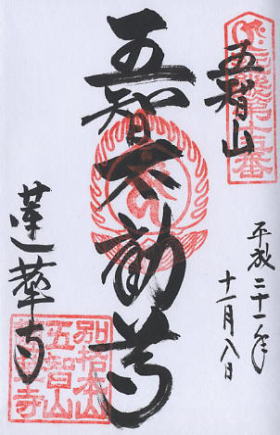 五智山
五智不動尊
平成二十一年
十一月八日
蓮華寺
別格本山
五智山
蓮華寺